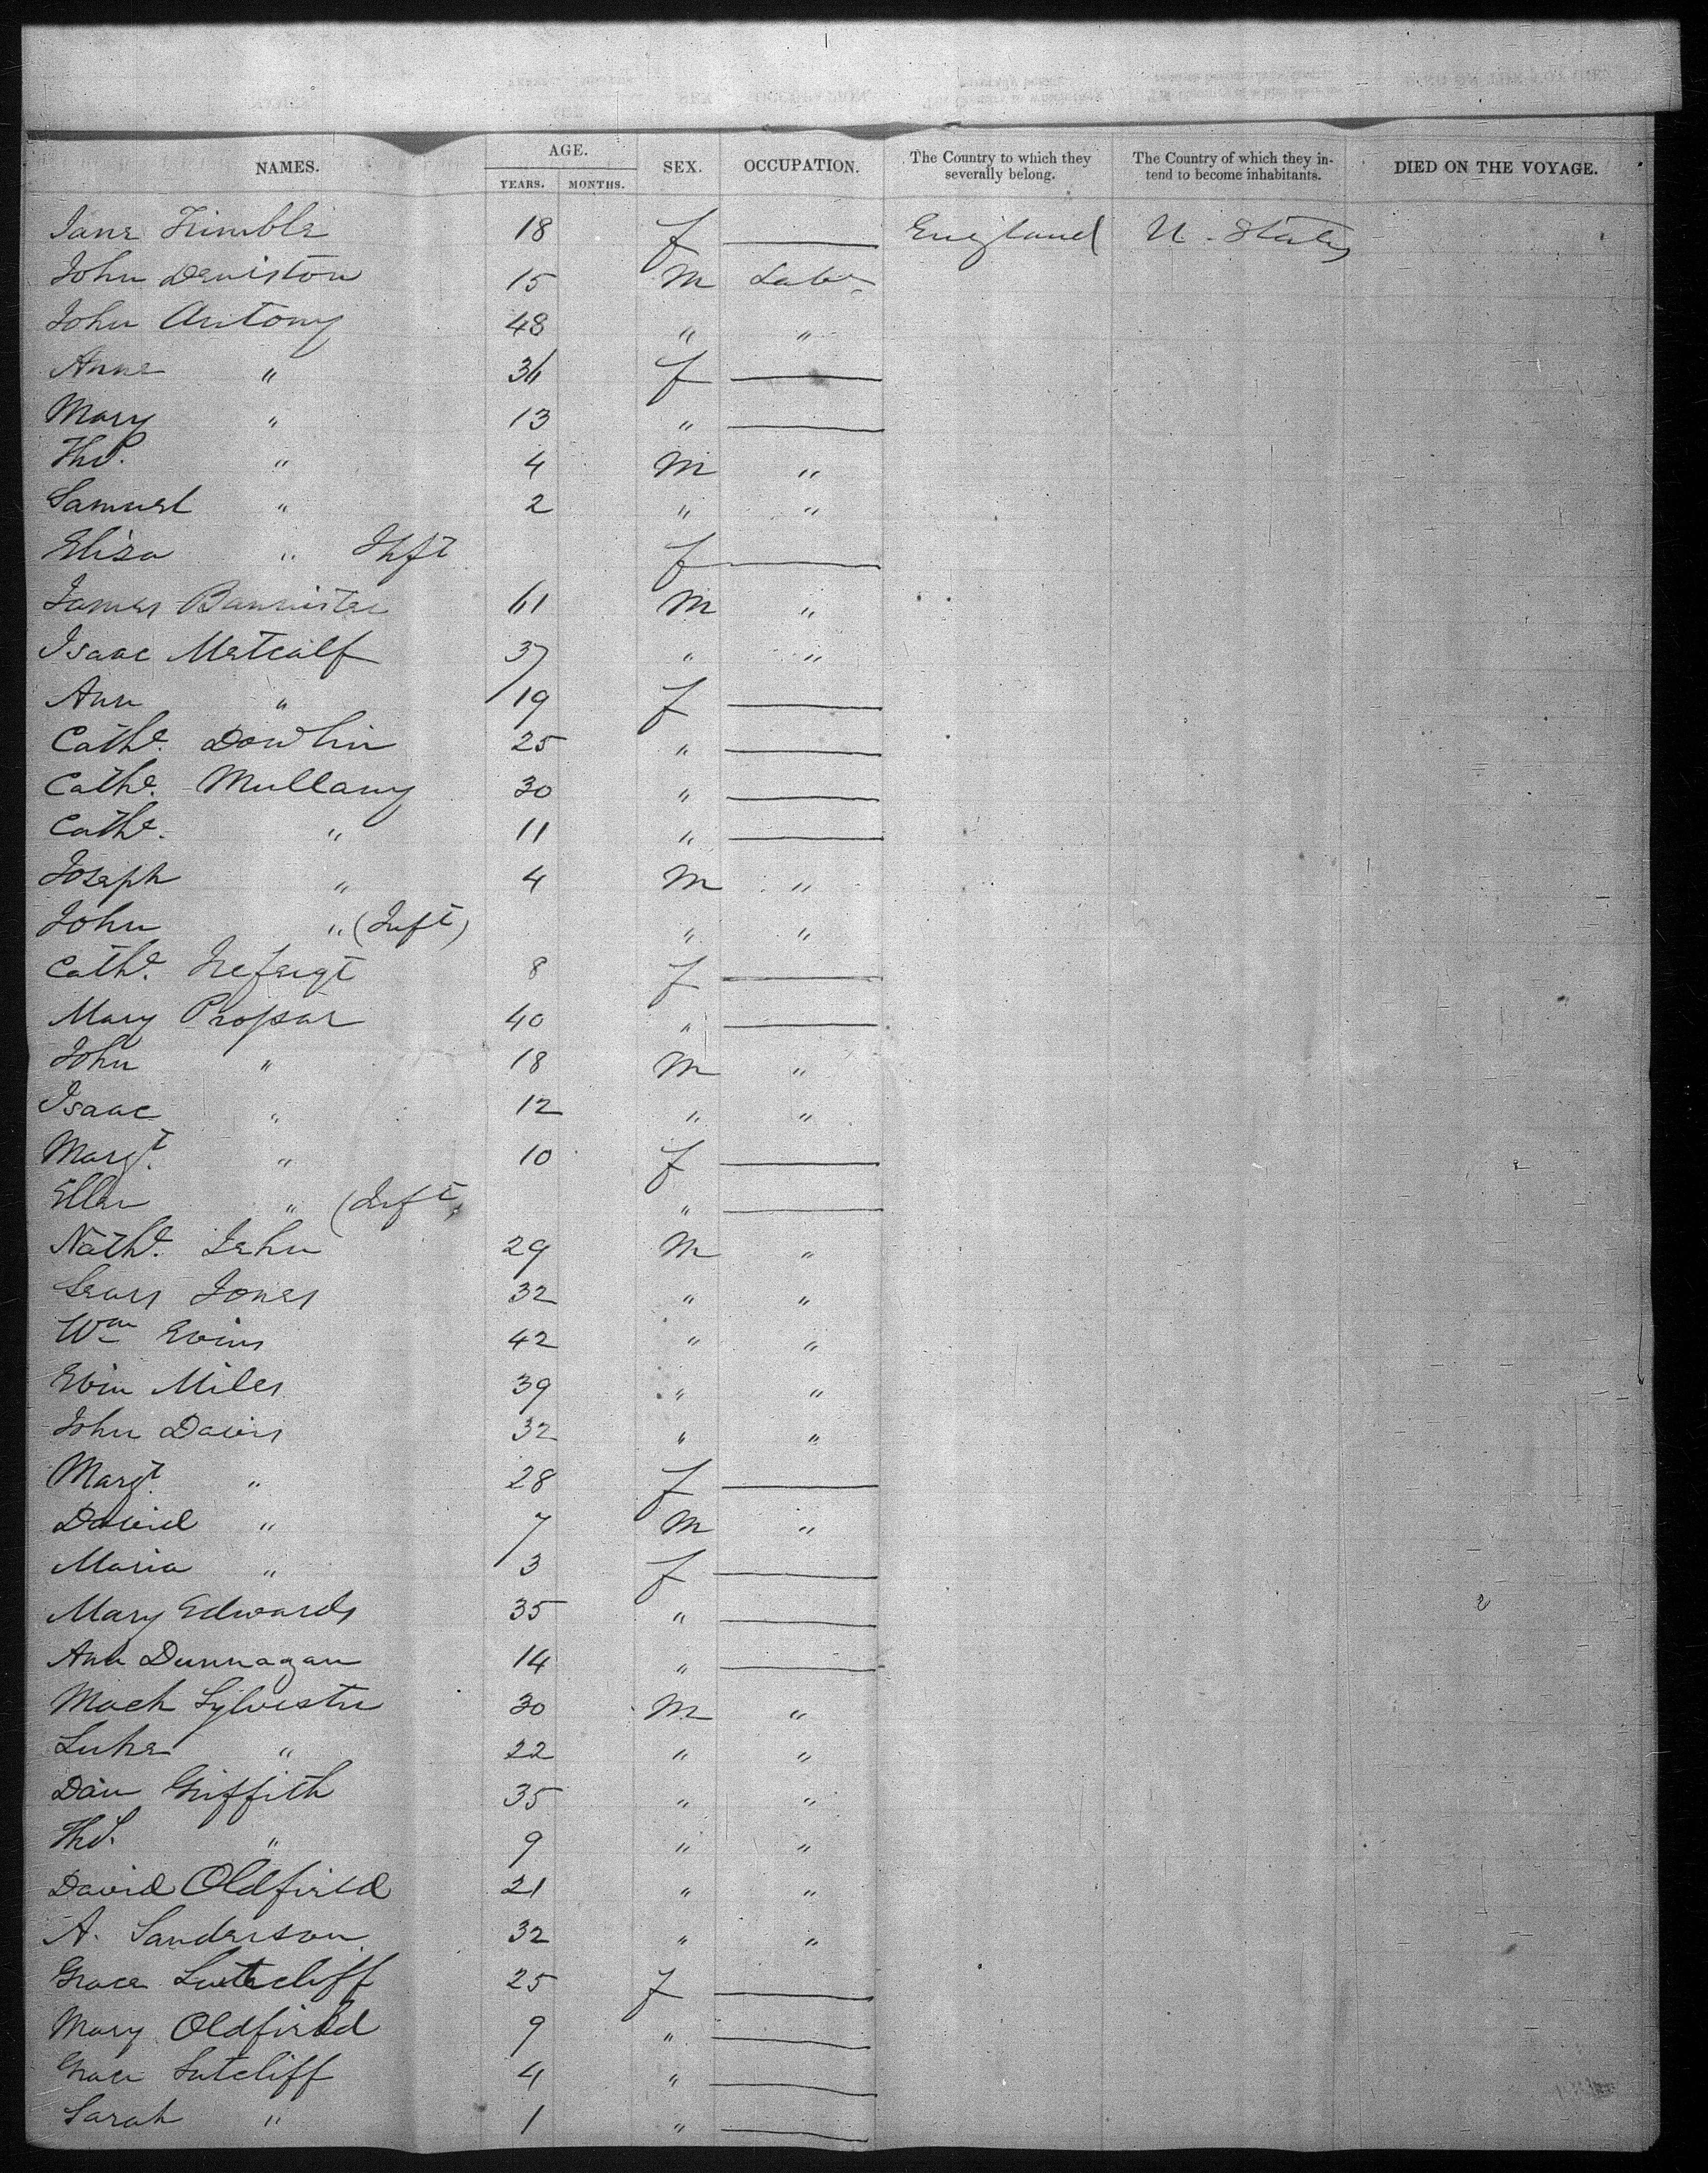 NAMES. AGE. YEARS. MONTHS. SEX. OCCUPATION. The Country to which they severally belong. The Country of which they intend to become inhabitants. DIED ON THE VOYAGE.
Jane Trimble 18 f — England U. States
John Deniston 15 M Labr
John Antony 48 " "
Anne " 36 f —
Mary " 13 " —
Thos. " 4 M "
Samuel " 2 " "
Eliza " Inft f —
James Bannister 61 M "
Isaac Metcalf 37 " "
Ann " 19 f —
Cathe. Dowlin 25 " —
Cathe. Mullany 30 " —
Cathe. " 11 " —
Joseph " 4 M "
John " (Inft) " "
Cathe. 8 f —
Mary Prosser 40 " —
John " 18 M "
Isaac " 12 " "
Margt. " 10 f —
Ellen " (Inft) " —
Nathl. Jehu 29 M "
Jones 32 " "
Wm Evins 42 " "
Evin Miles 39 " "
John Davis 32 " "
Margt. " 28 f —
David " 7 M "
Maria " 3 f —
Mary Edwards 35 " —
Ann Dunnagan 14 " —
Mack Sylvester 30 M "
Luke " 22 " "
Dan Griffith 35 " "
Thos. " 9 " "
David Oldfield 21 " "
A. Sanderson 32 " "
Grace Sutcliff 25 f —
Mary Oldfield 9 " —
Grace Sutcliff 4 " —
Sarah " 1 " —